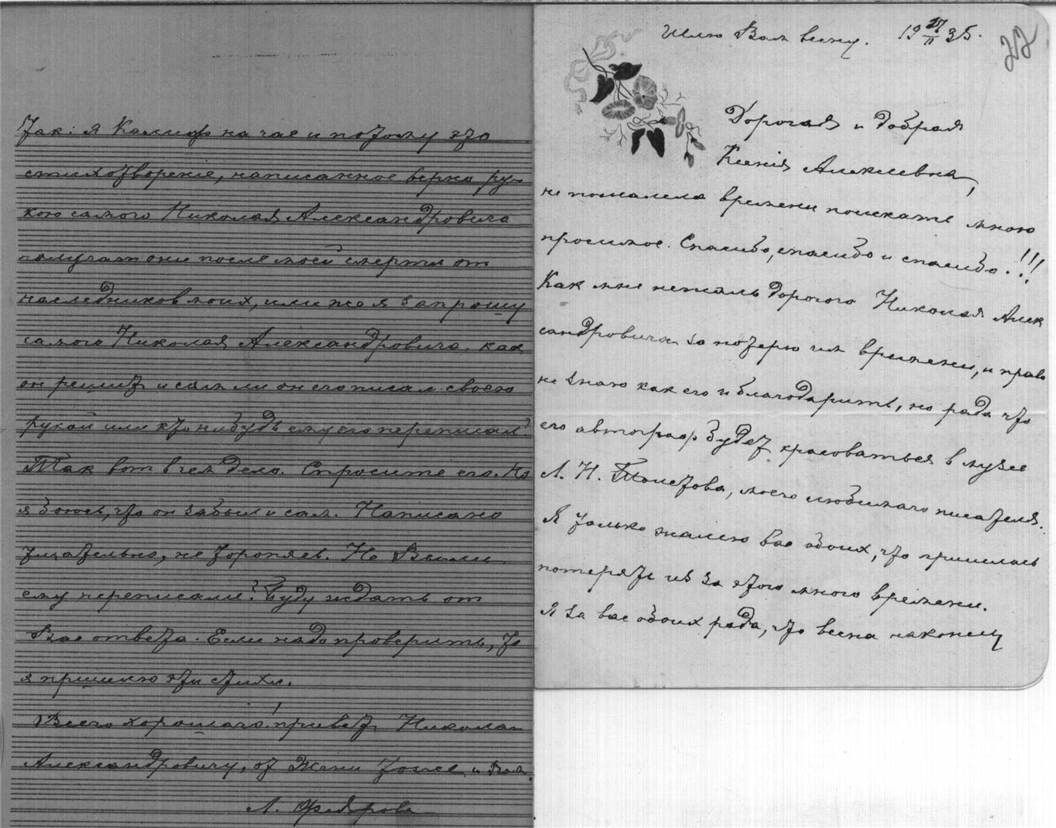 так: я Калиф на час и потому это
стихотворение, написанное верно ру-
кою самого Николая Александровича
получат они после моей смерти от
наследников моих, или же я запрошу
самого Николая Александровича, как
он решит и сам ли он его писал своею
рукой или кто нибудь ему его переписал?
Так вот в чем дело. Спросите его. Но
я боюсь, что он забыл и сам. Написано
тщательно, не торопясь. Не Вы ли
ему переписали? Буду ждать от
Вас ответа. Если надо проверить, то
я пришлю эти стихи.
Всего хорошаго! привет Николаю
Александровичу, от Жени тоже и
Л.
Шлю Вам весну. 19 35.
22
Дорогая и добрая
Ксенія Алексеевна,
не пожалела времени поискать мною
просимое. Спасибо, спасибо и спасибо!!!
Как мне не жаль дорогого Николая Алек
сандровича за потерю им времени, и право
не знаю как его и благодарить, но рада что
его автограф будет красоваться в музее
Л. Н. Толстова, моего любимаго писателя.
Я только жалею вас обоих, что пришлось
потерять из за этого много времени.
Я за вас обоих рада, что весна наконец